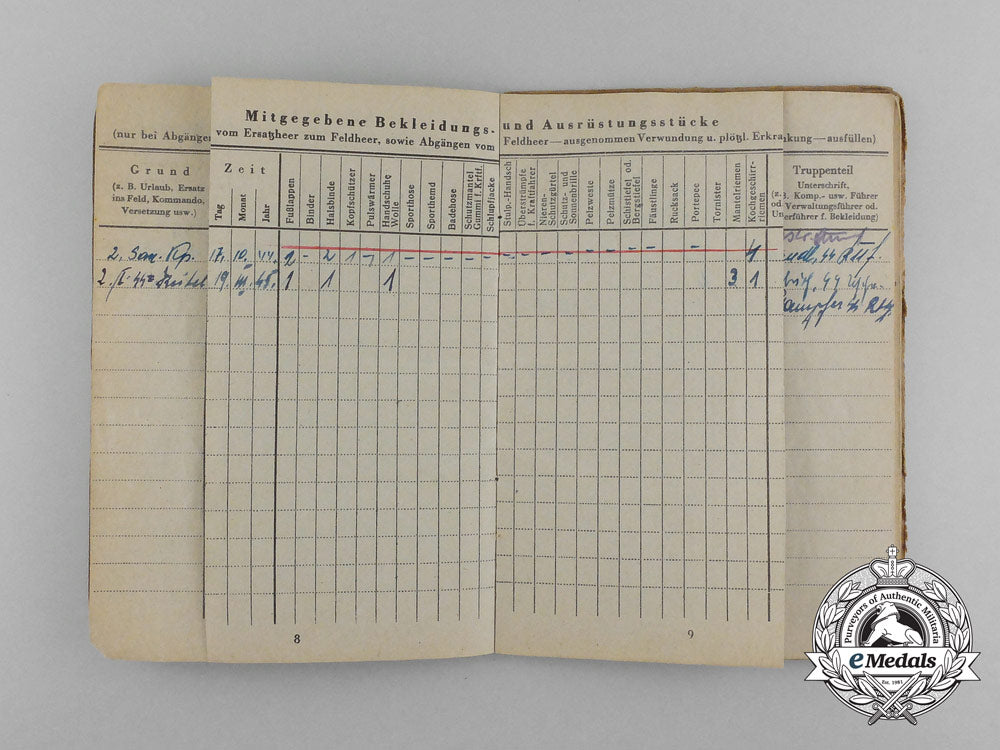 Mitgegebene Bekleidungs- und Ausrüstungsstücke
(nur bei Abgängen vom Ersatzheer zum Feldheer, sowie Abgängen vom Feldheer — ausgenommen Verwundung u. plötzl. Erkrankung — ausfüllen)
Grund
(z. B. Urlaub, Ersatz
ins Feld, Kommando,
Versetzung usw.)
Zeit
Tag
Monat
Jahr
Fußlappen
Binder
Halsbinde
Kopfschützer
Pulswärmer
Handschuhe
Wolle
Sporthose
Sporthemd
Badehose
Schutzmantel
Gummi f. Krftf.
Schlupfjacke
Stulp.-Handsch
Überstrümpfe
f. Kraftfahrer
Nieren-
Schutzgürtel
Schutz- und
Sonnenbrille
Pelzweste
Pelzmütze
Schistiefel od.
Bergstiefel
Fäustlinge
Rucksack
Portepee
Tornister
Mantelriemen
Kochgeschirr-
riemen
Truppenteil
Unterschrift,
(z. B. Komp.- usw. Führer
od. Verwaltungsführer od.
Unterführer f. Bekleidung)
2. San. Kp. 17. 10. 44 2 - 2 1 - 1 - - - - - - - - - - - - - - -
19. 45. 1 1 1 3 1
8
9
Purveyors of Authentic Militaria
eMedals
Est. 1981